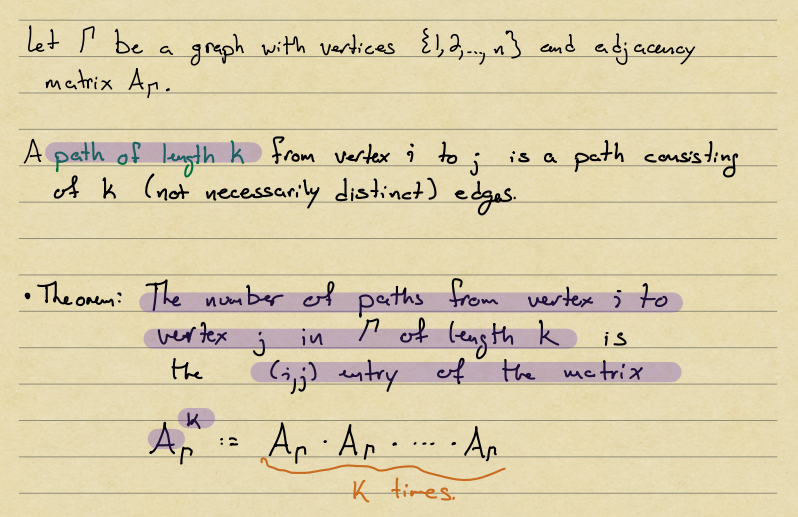 Let Γ be a graph with vertices {1,2,..,n} and adjacency
matrix A_Γ.
A path of length k from vertex i to j is a path consisting
of k (not necessarily distinct) edges.
• Theorem: The number of paths from vertex i to
vertex j in Γ of length k is
the (i,j) entry of the matrix
A_Γ^k := A_Γ · A_Γ · .... · A_Γ
K times.